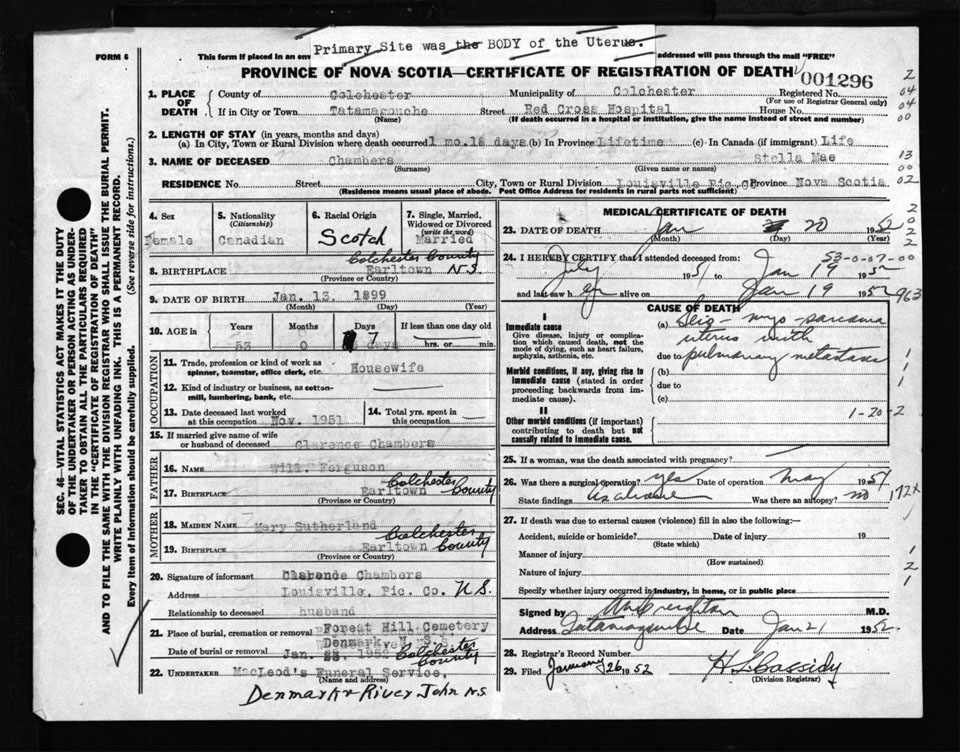 Primary Site was the BODY of the Uterus.
FORM 6
This form if placed in an env addressed will pass through the mail "FREE"
PROVINCE OF NOVA SCOTIA—CERTIFICATE OF REGISTRATION OF DEATH
001296
1. PLACE OF DEATH County of Colchester Municipality of Colchester Registered No.
(For use of Registrar General only)
If in City or Town Tatamagouche Street Red Cross Hospital House No.
(Name) (If death occurred in a hospital or institution, give the name instead of street and number)
2. LENGTH OF STAY (in years, months and days)
(a) In City, Town or Rural Division where death occurred 1 mo.18 days (b) In Province Lifetime (c) In Canada (if immigrant) Life
3. NAME OF DECEASED Chambers Stella Mae
(Surname) (Given name or names)
RESIDENCE No. Street City, Town or Rural Division Louisville Pic.C Province Nova Scotia
(Residence means usual place of abode. Post Office Address for residents in rural parts not sufficient)
2
04
04
00
13
00
02
4. Sex
Female
5. Nationality
(Citizenship)
Canadian
6. Racial Origin
Scotch
7. Single, Married, Widowed or Divorced
(write the word)
Married
Colchester County
8. BIRTHPLACE Earltown N.S.
(Province or Country)
9. DATE OF BIRTH Jan. 13. 1899
(Month) (Day) (Year)
10. AGE in Years Months Days If less than one day old
53 0 7 days hrs. or min.
OCCUPATION
11. Trade, profession or kind of work as spinner, teamster, office clerk, etc. Housewife
12. Kind of industry or business, as cotton-mill, lumbering, bank, etc.
13. Date deceased last worked at this occupation Nov. 1951
14. Total yrs. spent in this occupation
15. If married give name of wife or husband of deceased Clarence Chambers
FATHER
16. NAME Will. Ferguson
17. BIRTHPLACE Earltown Colchester County
(Province or Country)
MOTHER
18. MAIDEN NAME Mary Sutherland
19. BIRTHPLACE Earltown Colchester County
(Province or Country)
20. Signature of informant Clarence Chambers
Address Louisville, Pic. Co. N.S.
Relationship to deceased husband
21. Place of burial, cremation or removal Forest Hill Cemetery
Denmark
Date of burial or removal Jan. 1952 Colchester County
22. UNDERTAKER MacLeod's Funeral Service,
(Name and address)
Denmark & River John N.S.
MEDICAL CERTIFICATE OF DEATH
23. DATE OF DEATH Jan 20 1952
(Month) (Day) (Year)
53-0-07-00
24. I HEREBY CERTIFY that I attended deceased from:
July 1951 to Jan 19 1952
and last saw her alive on Jan 19 1952
963
CAUSE OF DEATH
I
Immediate cause
Give disease, injury or complication which caused death, not the mode of dying, such as heart failure, asphyxia, asthenia, etc.
(a) Leio-myo-sarcoma uterus with
due to pulmonary metastases
Morbid conditions, if any, giving rise to immediate cause (stated in order proceeding backwards from immediate cause).
(b)
due to
(c)
II
Other morbid conditions (if important) contributing to death but not causally related to immediate cause.
1-20-2
25. If a woman, was the death associated with pregnancy?
26. Was there a surgical operation? yes Date of operation May 1951
State findings As above Was there an autopsy? no
27. If death was due to external causes (violence) fill in also the following:—
Accident, suicide or homicide? Date of injury 19
(State which)
Manner of injury
(How sustained)
Nature of injury
Specify whether injury occurred in industry, in home, or in public place
Signed by M.D.
Address Tatamagouche Date Jan 21 1952
28. Registrar's Record Number
29. Filed January 26 1952 H L Cassidy
(Division Registrar)
SEC. 46—VITAL STATISTICS ACT MAKES IT THE DUTY
OF THE UNDERTAKER OR PERSON ACTING AS UNDERTAKER
TO OBTAIN ALL THE PARTICULARS REQUIRED
IN THE "CERTIFICATE OF REGISTRATION OF DEATH"
AND TO FILE THE SAME WITH THE DIVISION REGISTRAR WHO SHALL ISSUE THE BURIAL PERMIT.
WRITE PLAINLY WITH UNFADING INK. THIS IS A PERMANENT RECORD.
Every item of information should be carefully supplied. (See reverse side for instructions.)